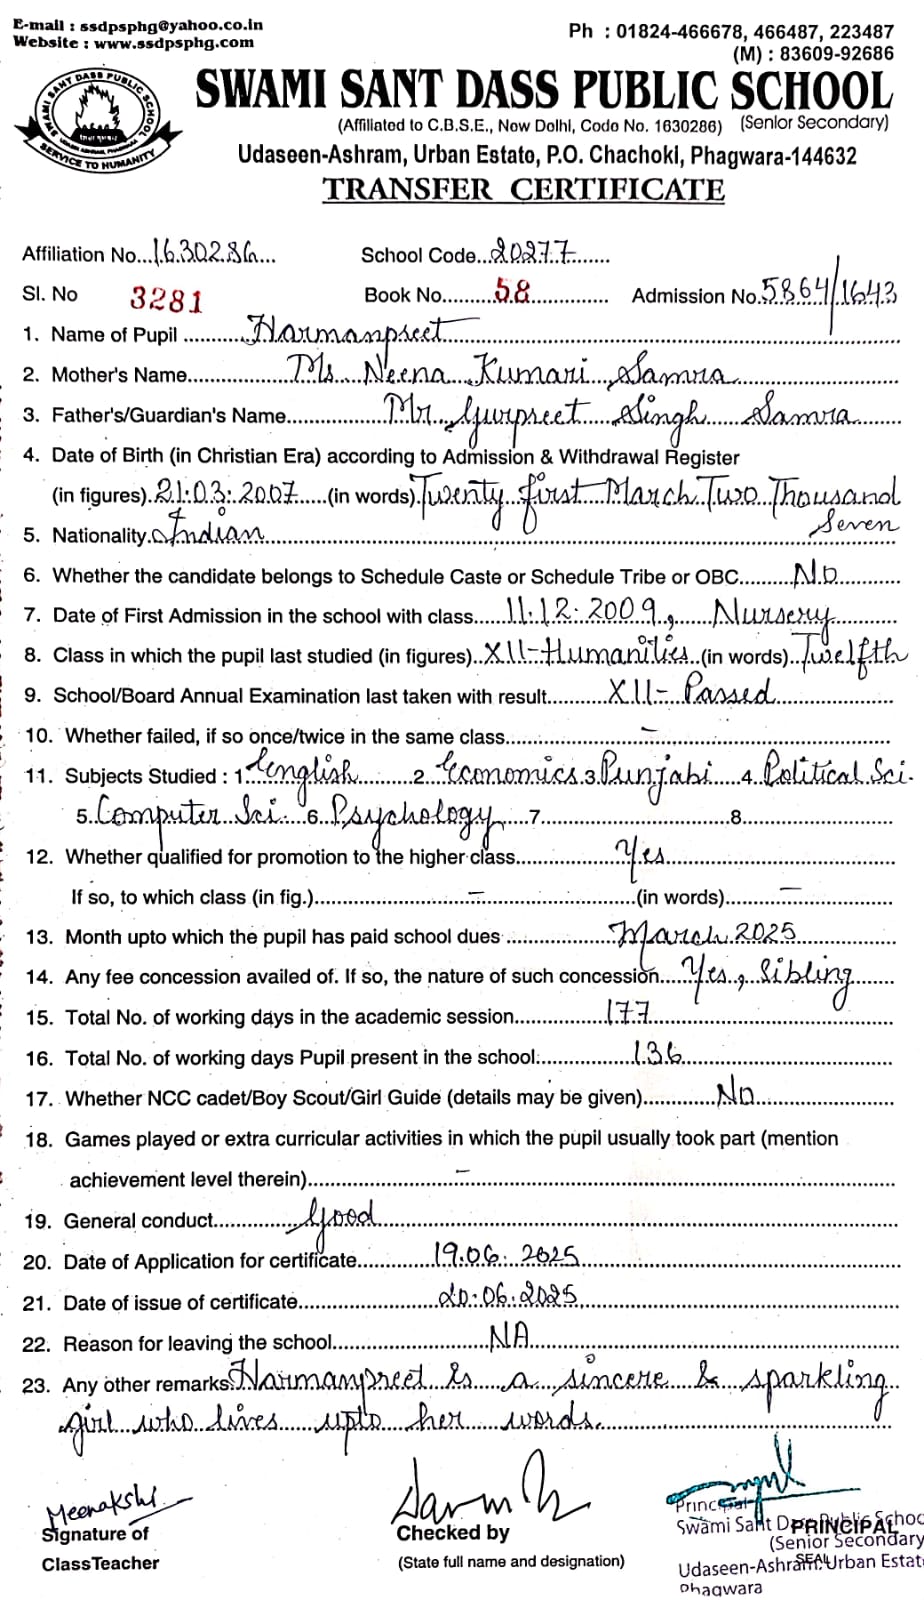 E-mail : ssdpsphg@yahoo.co.in
Website : www.ssdpsphg.com
Ph : 01824-466678, 466487, 223487
(M) : 83609-92686
SWAMI SANT DASS PUBLIC SCHOOL
SERVICE TO HUMANITY
SWAMI SANT DASS PUBLIC SCHOOL
(Affiliated to C.B.S.E., New Delhi, Code No. 1630286) (Senior Secondary)
Udaseen-Ashram, Urban Estate, P.O. Chachoki, Phagwara-144632
TRANSFER CERTIFICATE
Affiliation No...1630286... School Code...20277...
Sl. No 3281 Book No...58... Admission No. 5864/1643
1. Name of Pupil ...Harmanpreet...
2. Mother's Name...Ms. Neena Kumari Samra...
3. Father's/Guardian's Name...Mr. Gurpreet Singh Samra
4. Date of Birth (in Christian Era) according to Admission & Withdrawal Register
(in figures). 21.03.2007...(in words). Twenty first March Two Thousand
Seven
5. Nationality. Indian...
6. Whether the candidate belongs to Schedule Caste or Schedule Tribe or OBC...No...
7. Date of First Admission in the school with class...11.12.2009, Nursery...
8. Class in which the pupil last studied (in figures)..XII-Humanities..(in words)..Twelfth
9. School/Board Annual Examination last taken with result...XII- Passed...
10. Whether failed, if so once/twice in the same class...–...
11. Subjects Studied : 1. English...2. Economics.3.Punjabi...4.Political Sci.
5.Computer Sci. 6.Psychology...7...8...
12. Whether qualified for promotion to the higher class...Yes...
If so, to which class (in fig.)...–...(in words)...–...
13. Month upto which the pupil has paid school dues ...March 2025...
14. Any fee concession availed of. If so, the nature of such concession...Yes, Sibling...
15. Total No. of working days in the academic session...177...
16. Total No. of working days Pupil present in the school:...136...
17. Whether NCC cadet/Boy Scout/Girl Guide (details may be given)...No...
18. Games played or extra curricular activities in which the pupil usually took part (mention
achievement level therein)...–...
19. General conduct...Good...
20. Date of Application for certificate...19.06.2025...
21. Date of issue of certificate...20.06.2025...
22. Reason for leaving the school...NA...
23. Any other remarks. Harmanpreet is a sincere & sparkling
girl who lives upto her words.
Meenakshi
Signature of
ClassTeacher
Checked by
(State full name and designation)
Principal
Swami Sant Dass Public School
PRINCIPAL
(Senior Secondary)
SEAL
Udaseen-Ashram, Urban Estate
Phagwara